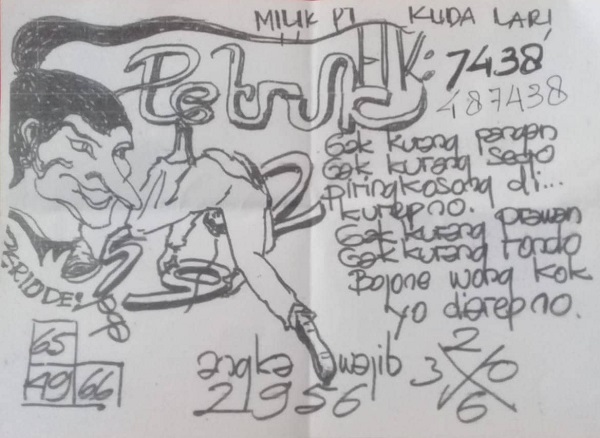 MILIK PT KUDA LARI
Petruk
EIK: 7438
487438
Gak kurang pangan
Gak kurang sego
piring kosong di...
kurepno.
Gak kurang prawan
Gak kurang rondo
Bojone wong kok
yo diarepno.
2
65
49 66
angka wajib
21956
2
3 0
6